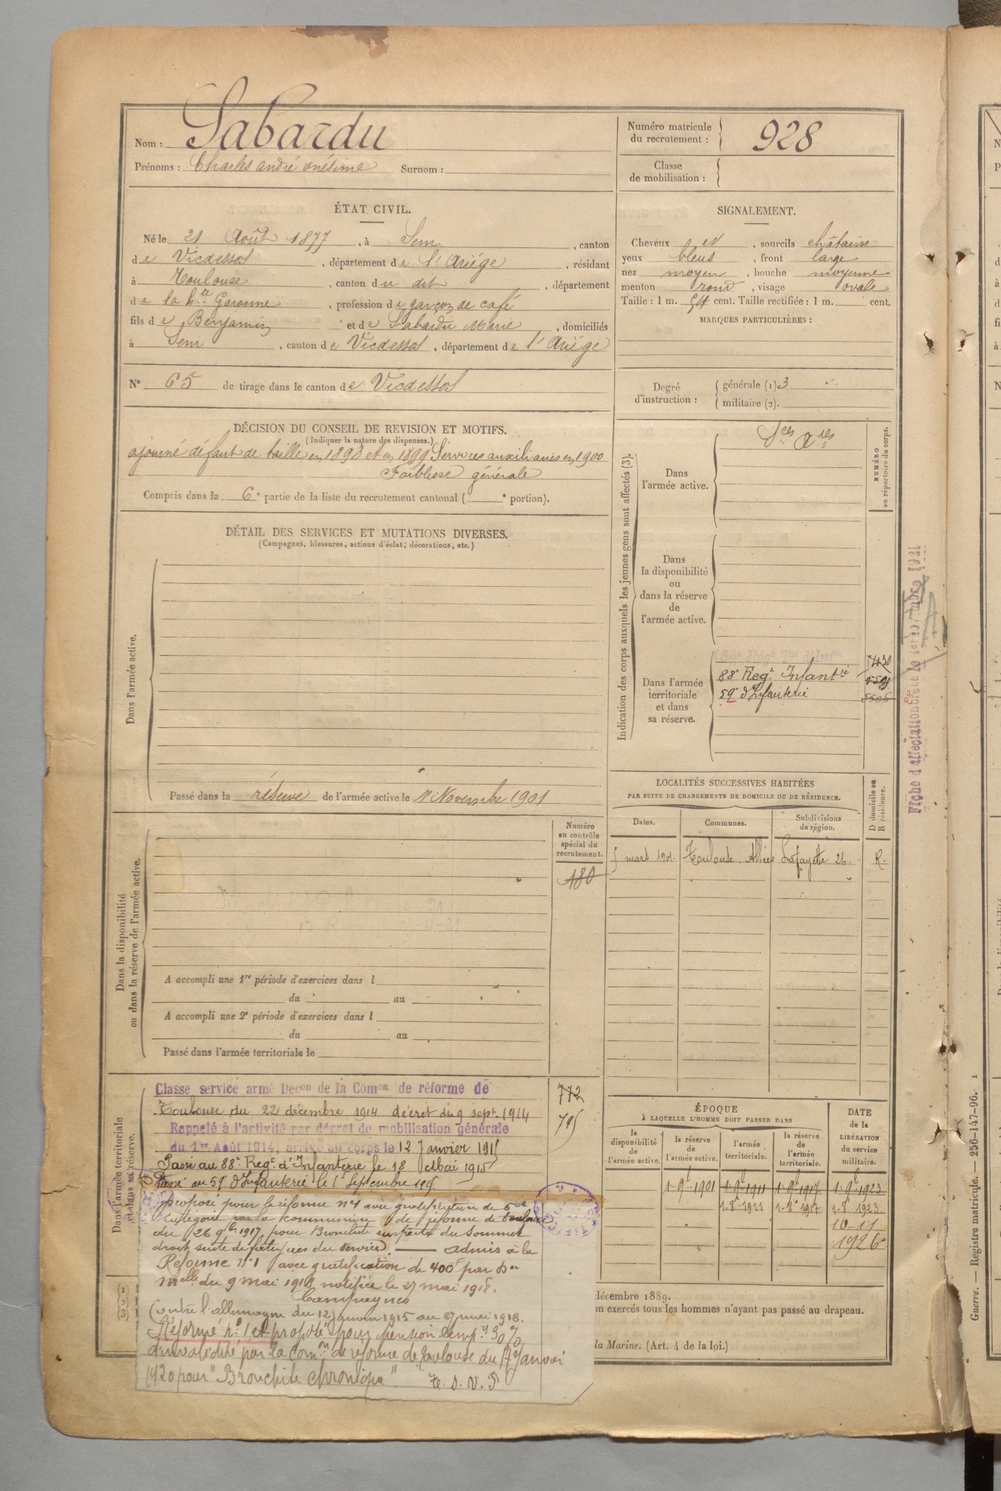 Nom : Sabardu
Prénoms : Charles andré onésime Surnom :
Numéro matricule
du recrutement : 928
Classe
de mobilisation :
ÉTAT CIVIL.
Né le 21 Août 1877, à Sem, canton
de Vicdessos, département de l'Ariége, résidant
à Toulouse, canton du dit, département
de la hte Garonne, profession de garçon de café
fils de Benjamin et de Sabardu Marie, domiciliés
à Sem, canton de Vicdessos, département de l'Ariége
N° 65 de tirage dans le canton de Vicdessos
SIGNALEMENT.
Cheveux et, sourcils châtains
yeux bleus, front large
nez moyen, bouche moyenne
menton rond, visage ovale
Taille : 1 m. 54 cent. Taille rectifiée : 1 m. cent.
MARQUES PARTICULIÈRES :
Degré
d'instruction :
générale (1) 3
militaire (2).
DÉCISION DU CONSEIL DE REVISION ET MOTIFS.
(Indiquer la nature des dispenses.)
ajourné défaut de taille en 1898 et en 1899 Services auxiliaires en 1900
Faiblesse générale
Compris dans la 6e partie de la liste du recrutement cantonal ( e portion).
DÉTAIL DES SERVICES ET MUTATIONS DIVERSES.
(Campagnes, blessures, actions d'éclat, décorations, etc.)
Dans l'armée active.
Passé dans la réserve de l'armée active le 1 Novembre 1901
Indication des corps auxquels les jeunes gens sont affectés (3).
NUMÉRO
au répertoire du corps.
Dans
l'armée active.
Sces ares
Dans
la disponibilité
ou
dans la réserve
de
l'armée active.
Dans l'armée
territoriale
et dans
sa réserve.
88e Regt Infantie
59e d'Infanterie
Fiche d'affectation
LOCALITÉS SUCCESSIVES HABITÉES
PAR SUITE DE CHANGEMENTS DE DOMICILE OU DE RÉSIDENCE.
Dates. Communes. Subdivisions
de région.
D domicile ou
R résidence.
mars Toulouse Allées Lafayette 26 R.
Dans la disponibilité
ou dans la réserve de l'armée active.
Numéro
au contrôle
spécial du
recrutement.
480
A accompli une 1re période d'exercices dans l
du au
A accompli une 2e période d'exercices dans l
du au
Passé dans l'armée territoriale le
Dans l'armée territoriale
et dans sa réserve.
772
795
Classe service armé Decon de la Comon de réforme de
Toulouse du 22 décembre 1914 décret du 9 sept. 1914
Rappelé à l'activité par décret de mobilisation générale
du 1er Août 1914, arrivé au corps le 12 Janvier 1915
Passé au 88e Regt d'Infanterie le 18 Mai 1915
Passé au 59e d'Infanterie le 1 Septembre 1915
proposé pour la réforme n° 1 avec gratification de 5me
Catégorie par la commission de réforme de Toulouse
du 26 9bre 1917 pour Bronchite suspecte du sommet
droit suite de fatigues du service. — admis à la
Réforme n° 1 avec gratification de 400f par Don
Mlle du 9 mai 1918 notifiée le 27 mai 1918.
Campagnes
Contre l'allemagne du 12 janvier 1915 au 27 mai 1918.
Réformé n° 1 et proposé pour pension temp. 30%
d'invalidité par la Comon de réforme de Toulouse du 17 Janvier
1920 pour "Bronchite chronique" T. S. V. P
ÉPOQUE
À LAQUELLE L'HOMME DOIT PASSER DANS
la
disponibilité
de
l'armée active.
la réserve
de
l'armée active.
l'armée
territoriale.
la réserve
de
l'armée
territoriale.
DATE
de la
LIBÉRATION
du service
militaire.
1-9e 1901 1-9e 1911 1-9e 1917 1-9e 1923
1-8e 1923
10-11
1926
décembre 1889.
n exercés tous les hommes n'ayant pas passé au drapeau.
la Marine. (Art. 4 de la loi.)
Guerre. — Registre matricule. — 256-147-96. 1